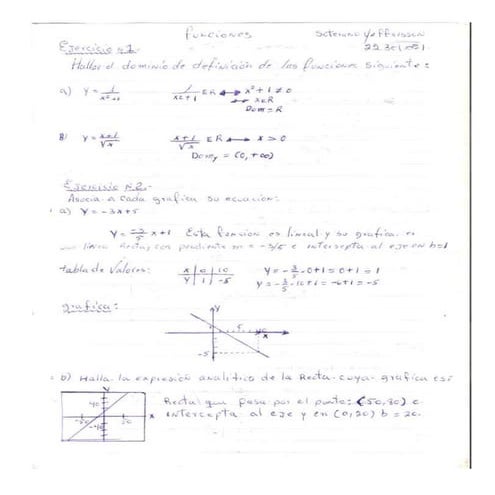 Funciones
Soteramo Jefferson
22.301.051
Ejercicio n.1.-
Hallar el dominio de definición de las funciones siguiente:
a) y = 1/x²+1   1/x²+1 ∈ R ↔ x²+1 ≠ 0
↔ x∈R
Dom = R
B) y = x+1/√x   x+1/√x ∈ R ↔ x > 0
Domy = (0,+∞)
Ejercicio n.2.-
Asocia a cada grafica su ecuacion:
a) y = -3x+5
y = -3/5 x+1 Esta función es lineal y su grafica es
una línea Recta, con pendiente m = -3/5 e intersepta al eje en b=1
tabla de valores: x | 0 | 10   y = -3/5 · 0+1 = 0+1 = 1
y | 1 | -5   y = -3/5 · 10+1 = -6+1 = -5
grafica:
y
5 10 x
-5
b) Halla la expresión analitica de la Recta cuya grafica es:
y
40
-50 50 x
-40
Recta que pasa por el punto: (50,80) e
intercepta al eje y en (0,20) b = 20.